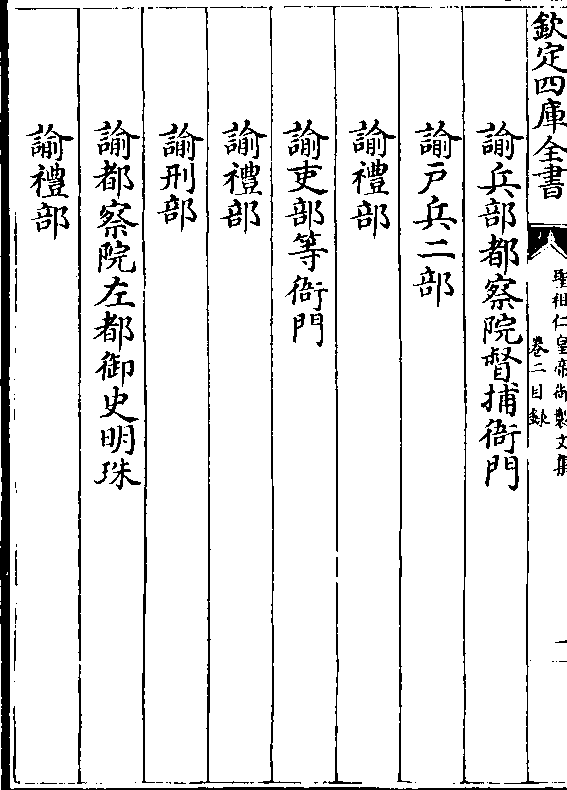 欽定四庫全書
聖祖仁皇帝御製文集
卷二目錄
一
諭兵部都察院督捕衙門
諭戶兵二部
諭禮部
諭吏部等衙門
諭禮部
諭刑部
諭都察院左都御史明珠
諭禮部